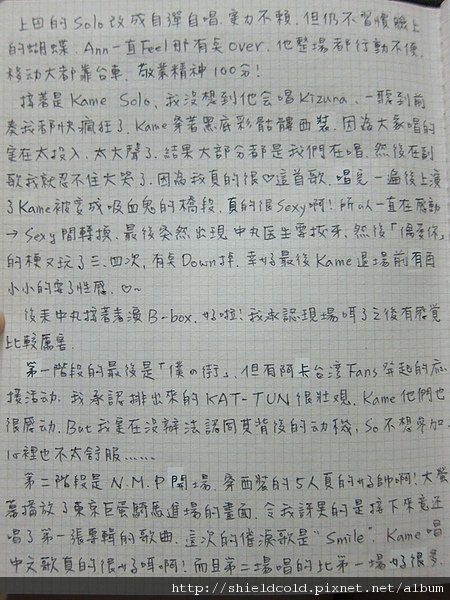 上田的Solo改成自彈自唱.實力不賴.但仍不習慣臉上
的蝴蝶.Ann一直Feel那有奌over.他整場都行動不便.
移动大都靠台車.敬業精神100分!
接著是Kame Solo.我沒想到他會唱Kizuna.一聽到前
奏我都快瘋狂了.Kame穿著黑底彩骷髏西裝.因為大家唱的
實在太投入.太大聲了.結果大部分都是我們在唱.然後在副
歌我就忍不住大哭了.因為我真的很♡這首歌.唱完一遍後上演
了Kame被变成吸血鬼的橋段.真的很Sexy啊!所以一直在感動
→Sexy間轉換.最後突然出現中丸医生要拔牙.然後「偶愛你」
的梗又玩了三.四次,有奌Down掉.幸好最後Kame退場前有再
小小的耍了性感.♡~
後來中丸接著表演B-box.好啦!我承認現場听了之後有感覚
比較厲害.
第一階段的最後是「僕の街」.但有阿卡台湾Fans発起的
接活动.我承認排出來的KAT-TUN很壯观.Kame他們也
很感动.But我實在沒辦法認同其背後的动機,So不想參加.
心裡也不太舒服......
第二階段是N.M.P開場.穿西裝的5人真的好帥啊!大螢
幕播放了東京巨蛋騎馬進場的畫面.令我訝異的是接下來竟还
唱了第一張專輯的歌曲.這次的催淚歌是"Smile".Kame唱
中文歌真的很好听啊!而且第二場唱的比第一場好很多.
http://shieldcold.pixnet.net/album